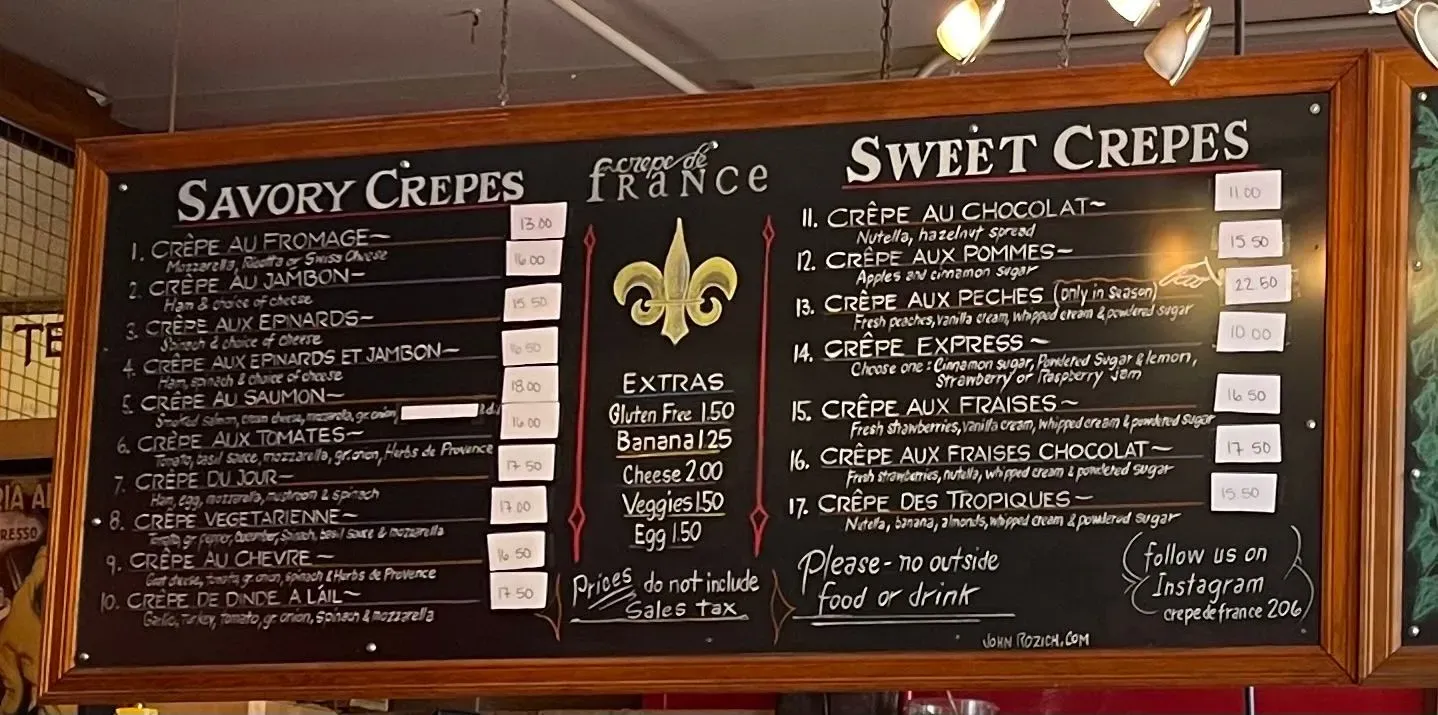 SAVORY CREPES
1. CRÊPE AU FROMAGE~ 13.00
Mozzarella, Ricotta or Swiss Cheese
2. CRÊPE AU JAMBON~ 16.00
Ham & choice of cheese
3. CRÊPE AUX EPINARDS~ 15.50
Spinach & choice of cheese
4. CRÊPE AUX EPINARDS ET JAMBON~ 16.50
Ham, spinach & choice of cheese
5. CRÊPE AU SAUMON~ 18.00
Smoked salmon, cream cheese, mozzarella, gr. onion,
6. CRÊPE AUX TOMATES~ 16.00
Tomato, basil sauce, mozzarella, gr. onion, Herbs de Provence
7. CRÊPE DU JOUR~ 17.50
Ham, egg, mozzarella, mushroom & spinach
8. CRÊPE VEGETARIENNE~ 17.00
Tomato, gr. pepper, cucumber, Spinach, basil sauce & mozzarella
9. CRÊPE AU CHEVRE~ 16.50
Goat cheese, tomato, gr. onion, spinach & Herbs de Provence
10. CRÊPE DE DINDE A LÁIL~ 17.50
Garlic, Turkey, Tomato, gr. onion, spinach & mozzarella
crepe de
FRANCE
EXTRAS
Gluten Free 1.50
Banana 1.25
Cheese 2.00
Veggies 1.50
Egg 1.50
Prices do not include
Sales tax
SWEET CREPES
11. CRÊPE AU CHOCOLAT~ 11.00
Nutella, hazelnut spread
12. CRÊPE AUX POMMES~ 15.50
Apples and cinnamon sugar
13. CRÊPE AUX PECHES (only in Season) 22.50
Fresh peaches, vanilla cream, whipped cream & powdered sugar
14. CRÊPE EXPRESS~ 10.00
Choose one: Cinnamon sugar, Powdered Sugar & lemon,
Strawberry or Raspberry Jam
15. CRÊPE AUX FRAISES~ 16.50
Fresh strawberries, vanilla cream, whipped cream & powdered sugar
16. CRÊPE AUX FRAISES CHOCOLAT~ 17.50
Fresh strawberries, nutella, whipped cream & powdered sugar
17. CRÊPE DES TROPIQUES~ 15.50
Nutella, banana, almonds, whipped cream & powdered sugar
Please - no outside
food or drink
follow us on
Instagram
crepedefrance206
JOHN ROZICH.COM